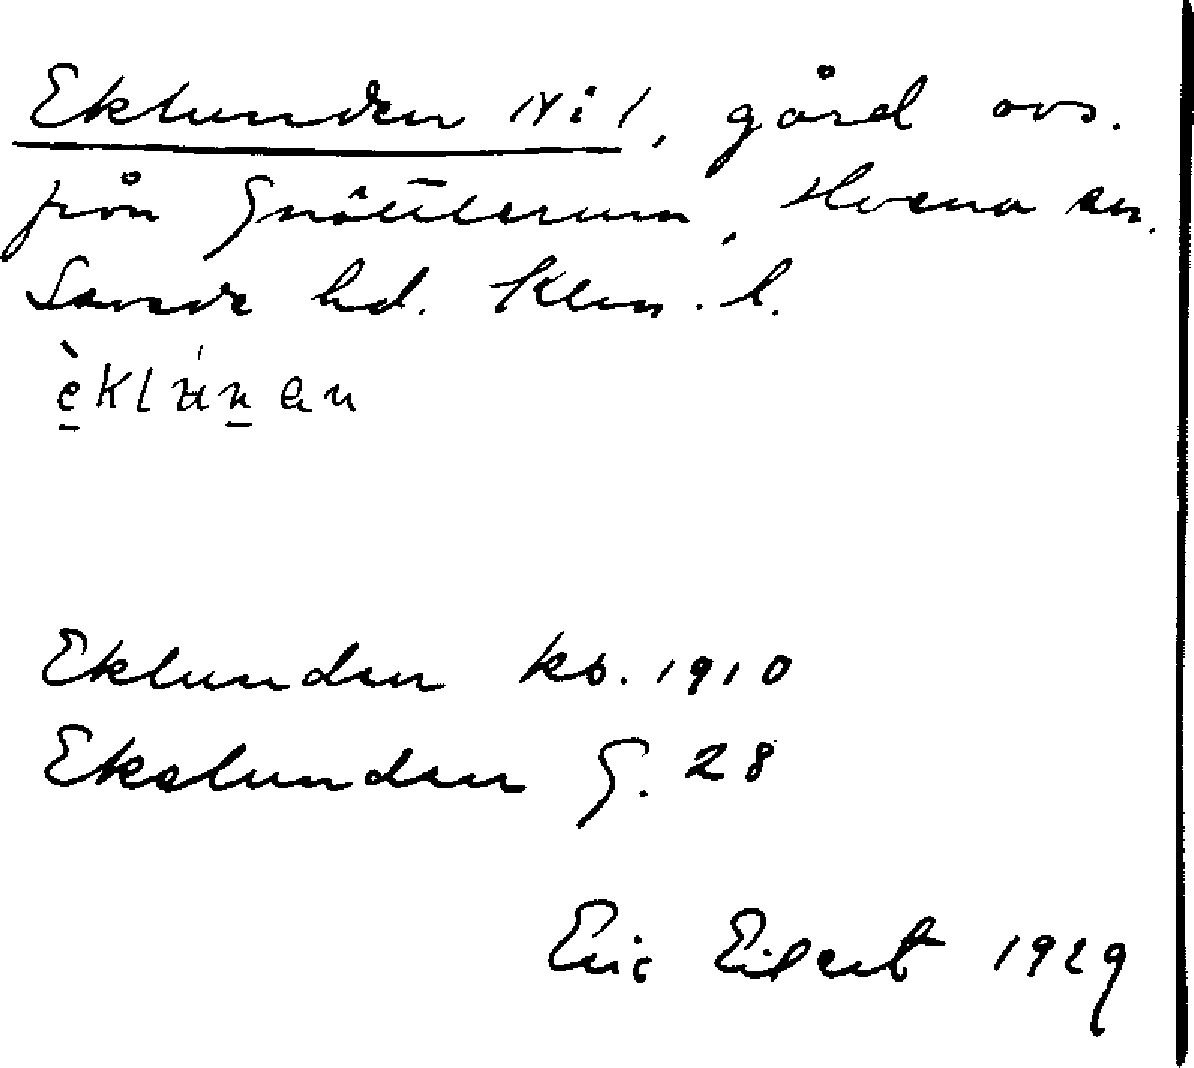 Eklunden N:i 1, gård avs.
från Gnöttlerum, Hvena sn.
Sevede hd. Klm. l.
Eklunden kb. 1910
Ekelunden G. 28
Eric Eilert 1929